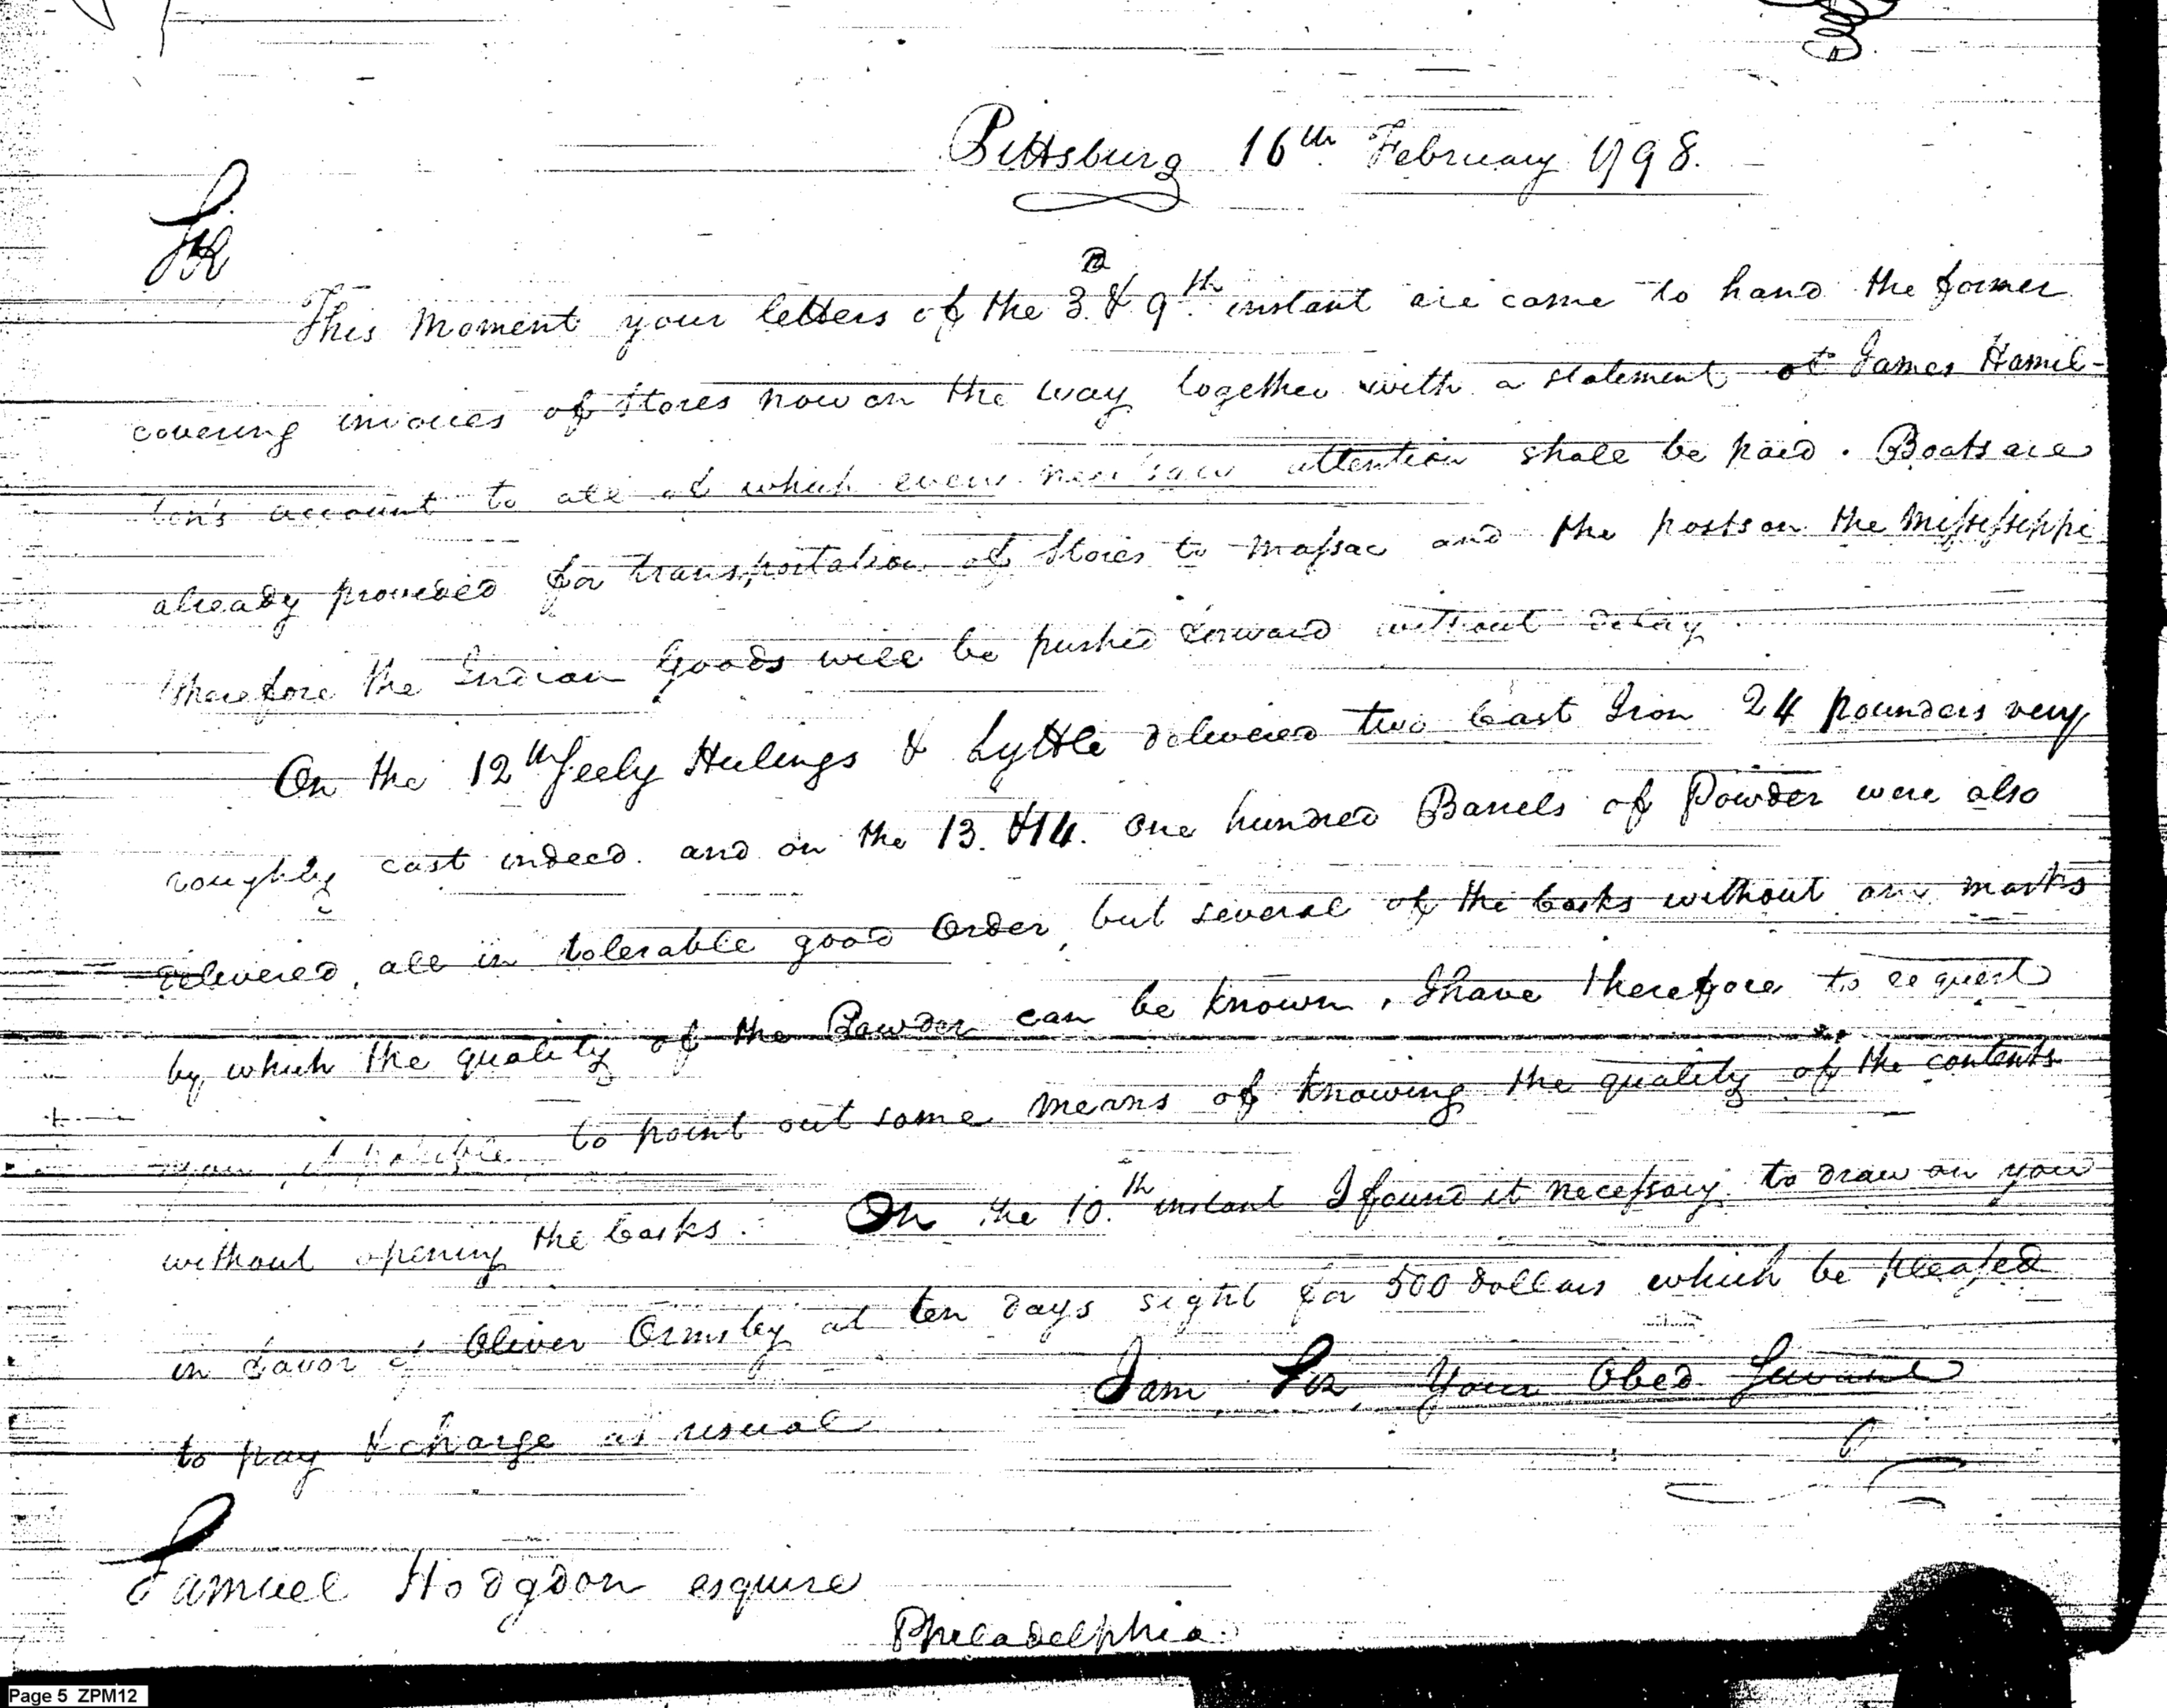 Pittsburg 16th February 1798.
Sir
This Moment your letters of the 3d & 9th instant are come to hand the former
covering invoices of Stores now on the way together with a statement of James Hamil-
ton's account to all of which every necessary attention shall be paid. Boats are
already provided for transportation of Stores to Massac and the posts on the Mississippi
therefore the Indian Goods will be pushed forward without delay.
On the 12th Hulings & Lyttle delivered two Cast Iron 24 pounders very
roughly cast indeed. and on the 13. & 14. One hundred Barrels of Powder were also
delivered, all in tolerable good Order, but several of the Casks without any marks
by which the quality of the Powder can be known, I have therefore to request
you, if possible, to point out some means of knowing the quality of the contents
without opening the Casks. On the 10th instant I found it necessary to draw on you
in favor of Oliver Ormsby at ten days sight for 500 dollars which be pleased
to pay & charge as usual
I am Sir Your Obed. Servant
Samuel Hodgdon esquire
Philadelphia.
Page 5 ZPM12